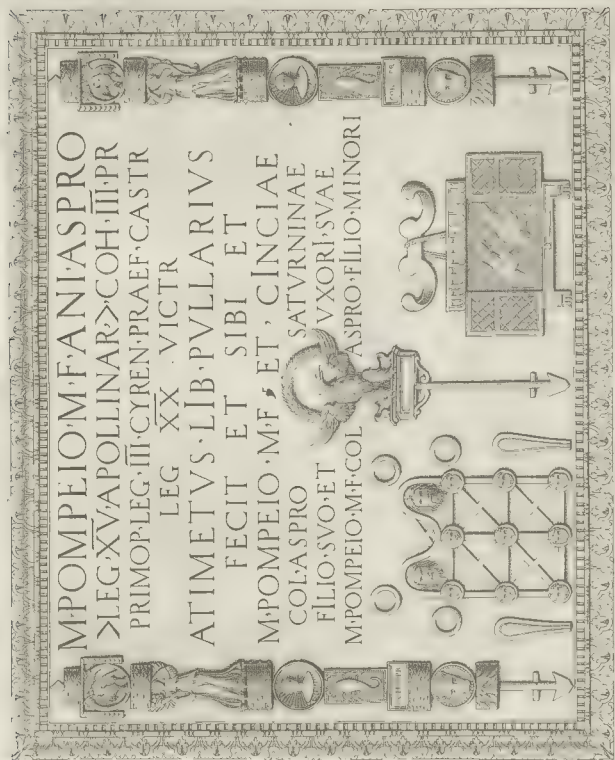 M·POMPEIO·M·F·ANI·ASPRO
>LEG·X̅V̅·APOLLINAR·>COH·I̅I̅I̅·PR
PRIMOP·LEG·I̅I̅I̅·CYREN·PRAEF·CASTR
LEG X̅X̅ · VICTR
ATIMETVS·LIB·PVLLARIVS
FECIT ET SIBI ET
M·POMPEIO·M·F· ET · CINCIAE
COL·ASPRO SATVRNINAE
FILIO·SVO·ET VXORI·SVAE
M·POMPEIO·M·F·COL ASPRO·FILIO·MINORI